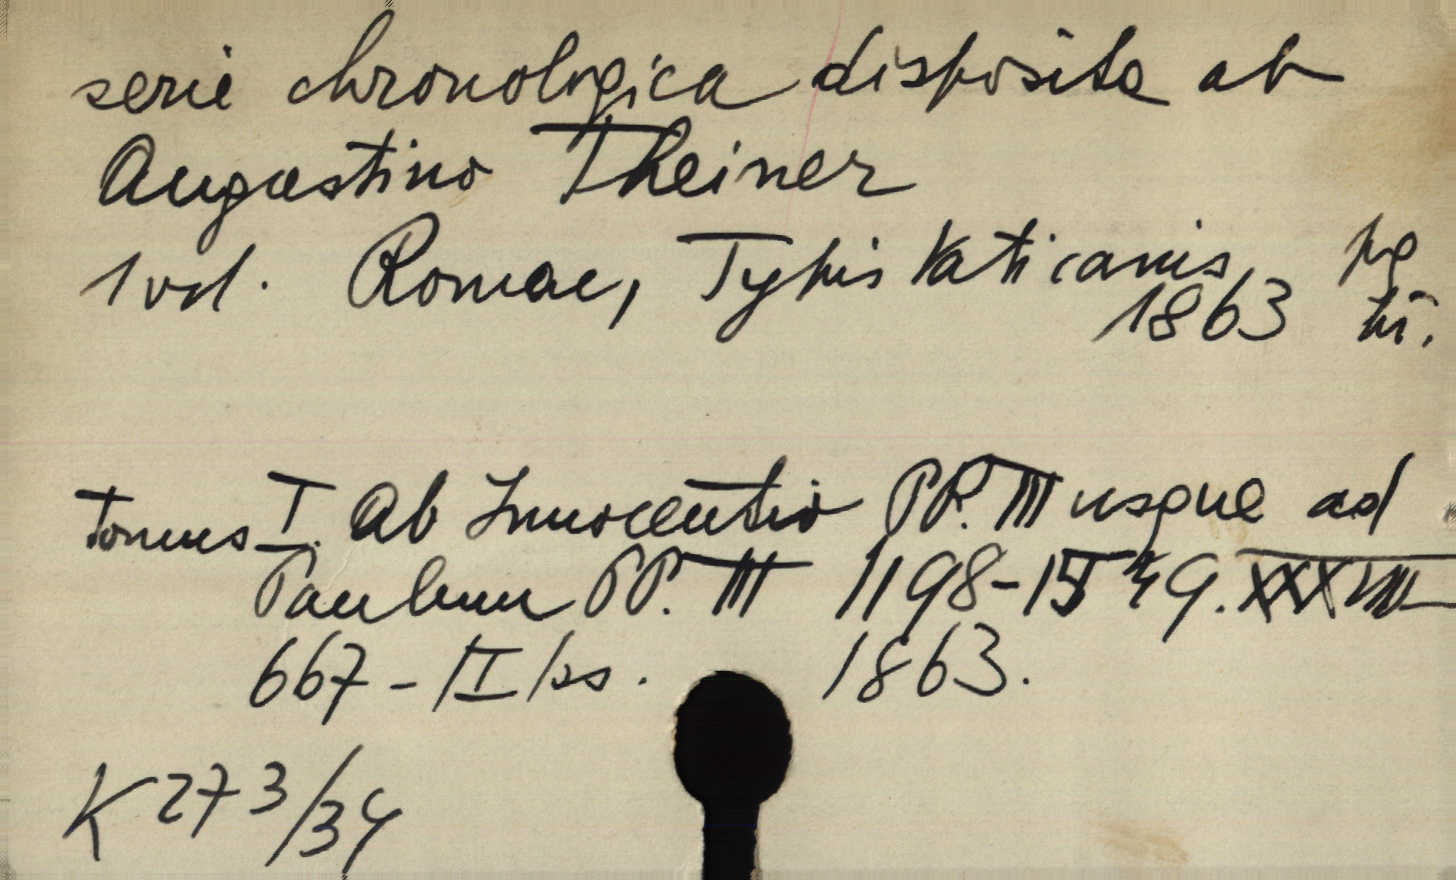 serie chronologica disposita ab
Augustino Theiner
1 vol. Romae, Typis Vaticanis, 1863
Tomus I. Ab Innocentio PP. III usque ad
Paulum PP. III 1198-1549. XXXVIII
667 - /I/ ss. 1863.
K 273/34